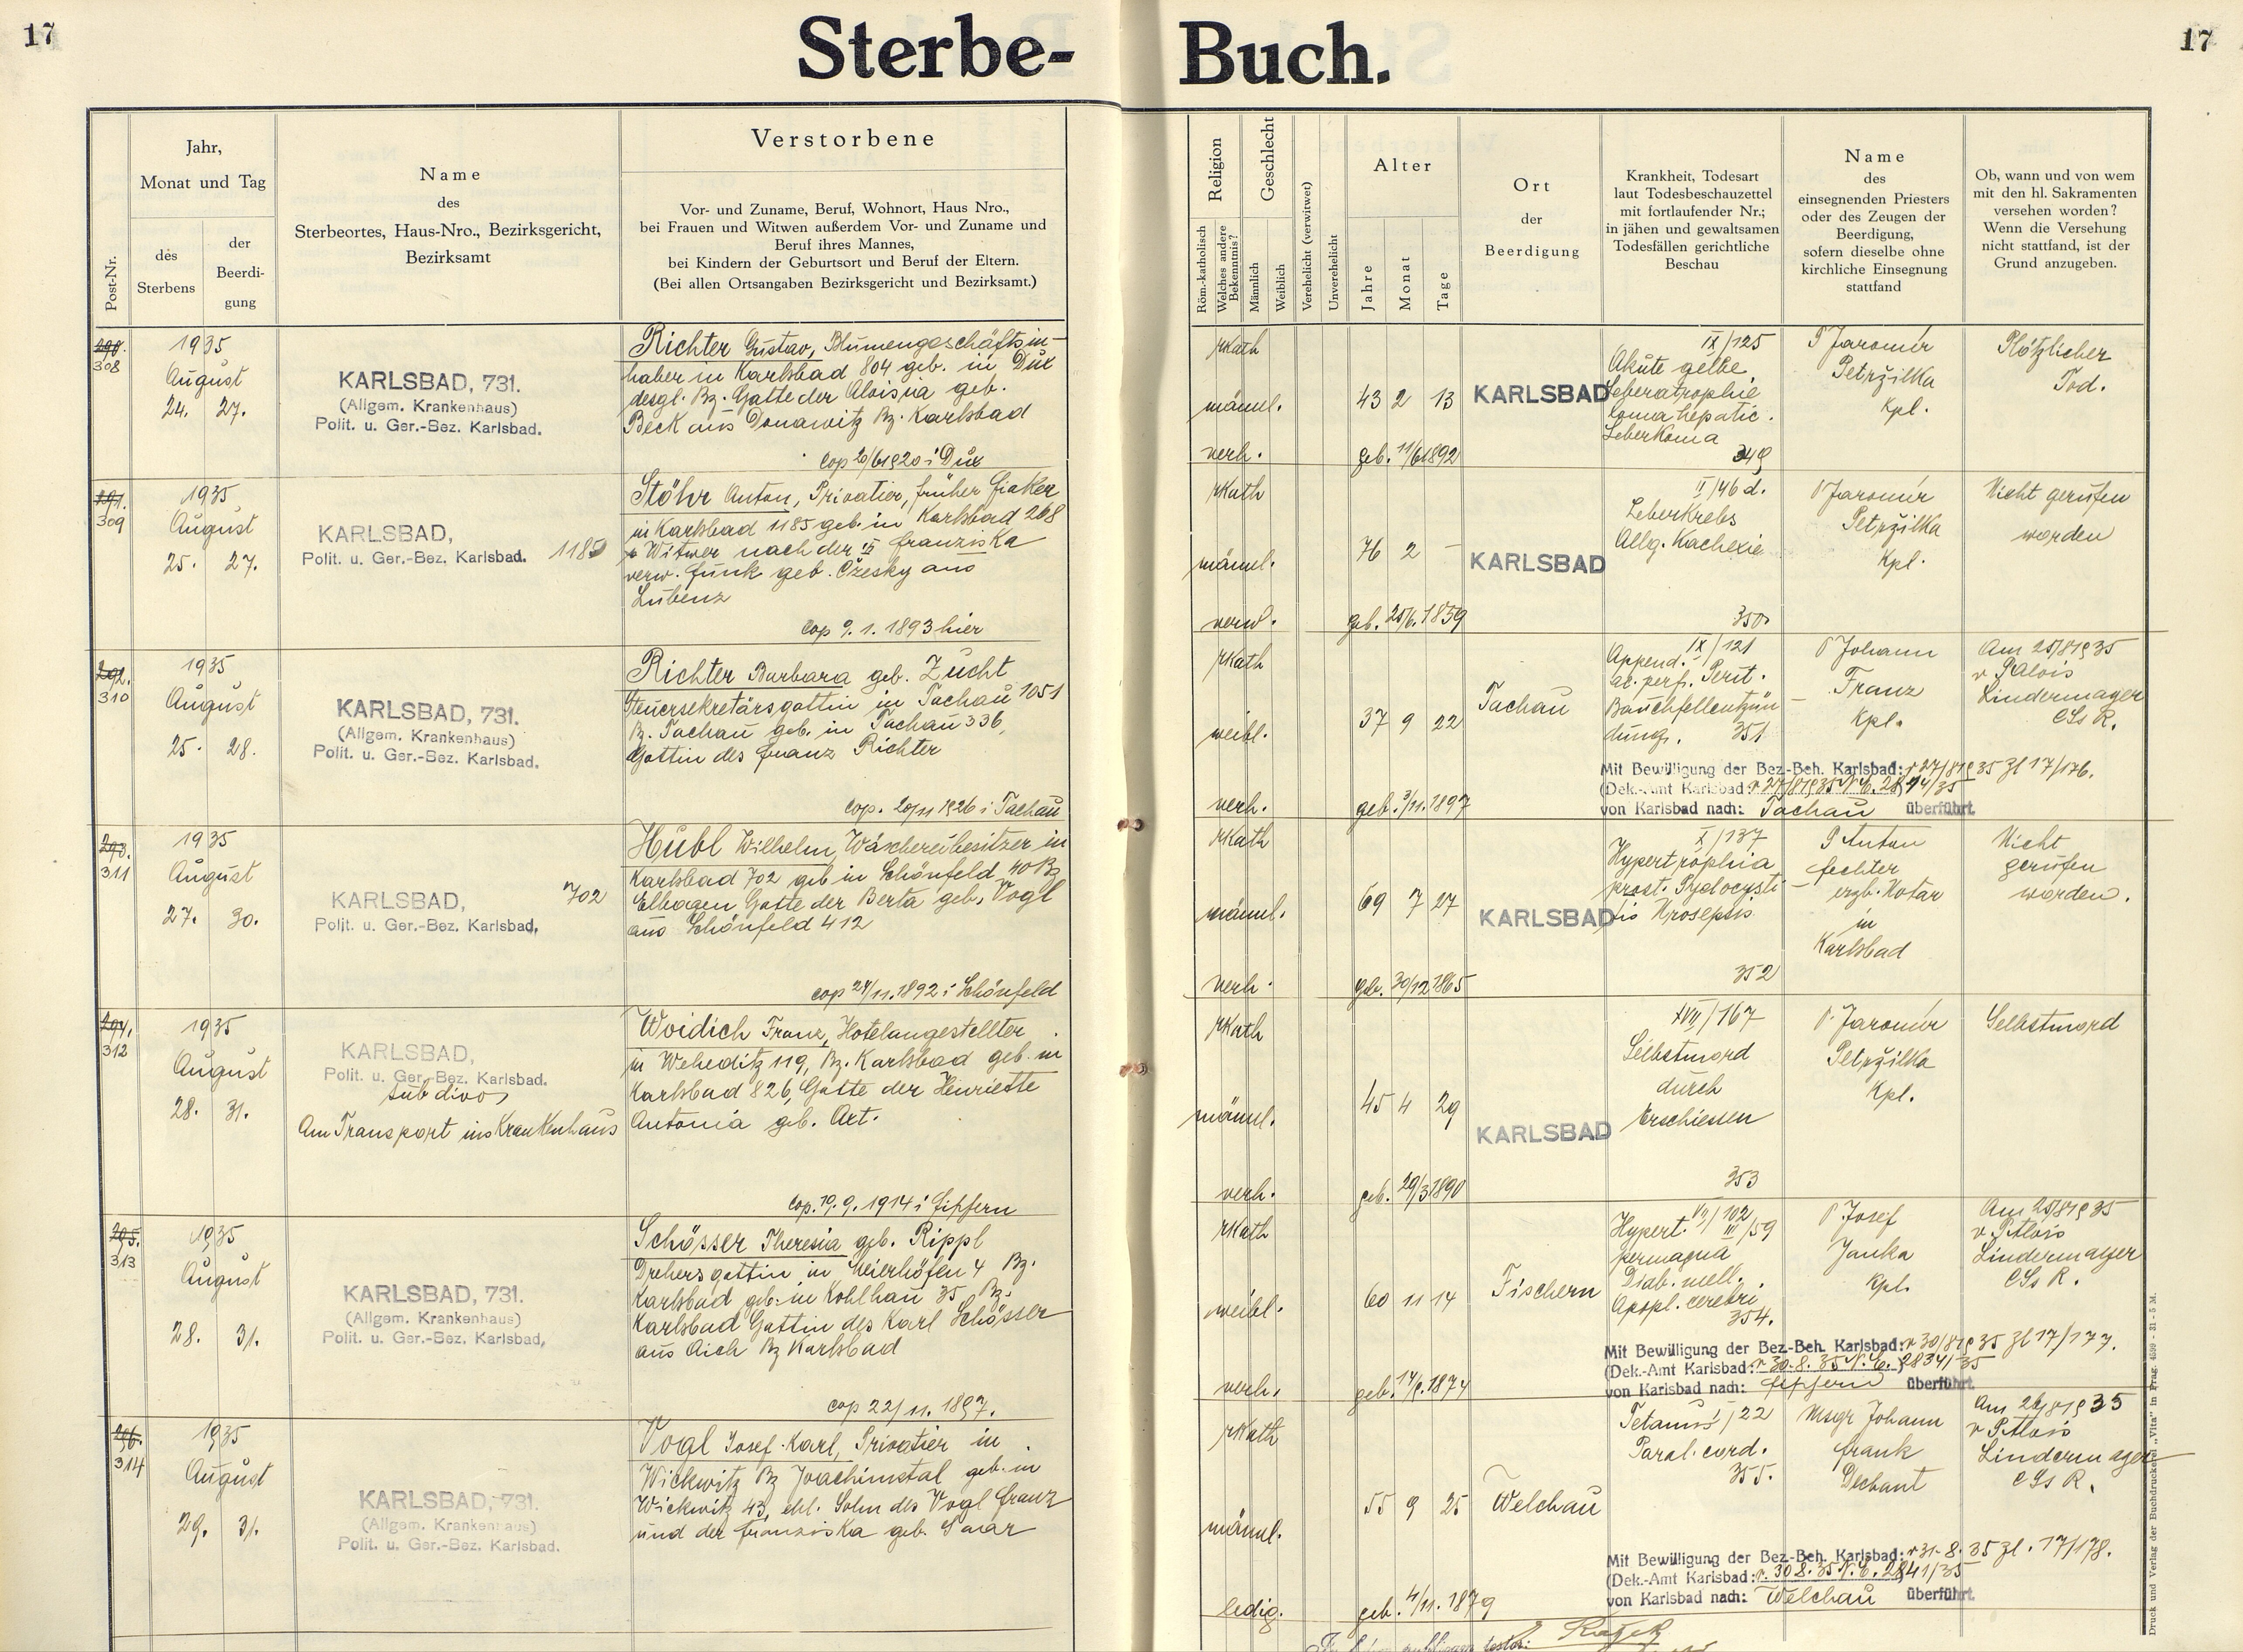 17
Sterbe-
Buch.
17
Post-Nr.
Jahr,
Monat und Tag
des
Sterbens
der
Beerdi-
gung
Name
des
Sterbeortes, Haus-Nro., Bezirksgericht,
Bezirksamt
Verstorbene
Vor- und Zuname, Beruf, Wohnort, Haus Nro.,
bei Frauen und Witwen außerdem Vor- und Zuname und
Beruf ihres Mannes,
bei Kindern der Geburtsort und Beruf der Eltern.
(Bei allen Ortsangaben Bezirksgericht und Bezirksamt.)
Religion
Röm.-katholisch
Welches andere
Bekenntnis?
Geschlecht
Männlich
Weiblich
Verehelicht (verwitwet)
Unverehelicht
Alter
Jahre
Monat
Tage
Ort
der
Beerdigung
Krankheit, Todesart
laut Todesbeschauzettel
mit fortlaufender Nr.;
in jähen und gewaltsamen
Todesfällen gerichtliche
Beschau
Name
des
einsegnenden Priesters
oder des Zeugen der
Beerdigung,
sofern dieselbe ohne
kirchliche Einsegnung
stattfand
Ob, wann und von wem
mit den hl. Sakramenten
versehen worden?
Wenn die Versehung
nicht stattfand, ist der
Grund anzugeben.
298.
308
1935
August
24. 27.
KARLSBAD, 731.
(Allgem. Krankenhaus)
Polit. u. Ger.-Bez. Karlsbad.
Richter Gustav, Blumengeschäftsin-
haber in Karlsbad 804 geb. in Dux
desgl. Bz. Gatte der Aloisia geb.
Beck aus Donawitz Bz. Karlsbad
cop 20/6 1920 i Dux
rKath
männl.
verh.
43 2 13
geb. 11/6 1892
KARLSBAD
IX/125
Akute gelbe
Leberatrophie
Coma hepatic.
Leberkoma
349
P Jaromír
Petržilka
Kpl.
Plötzlicher
Tod.
309
1935
August
25. 27.
KARLSBAD,
Polit. u. Ger.-Bez. Karlsbad.
1185
Stöhr Anton, Privatier, früher Fiaker
in Karlsbad 1185 geb. in Karlsbad 268
Witwer nach der II Franziska
verw. Funk geb. Cžesky aus
Lubenz
cop 9. 1. 1893 hier
rKath
männl.
verw.
76 2 –
geb. 25/6. 1859
KARLSBAD
II/46 d.
Leberkrebs
Allg. Kachexie
350
P Jaromír
Petržilka
Kpl.
Nicht gerufen
worden
292.
310
1935
August
25. 28.
KARLSBAD, 731.
(Allgem. Krankenhaus)
Polit. u. Ger.-Bez. Karlsbad.
Richter Barbara geb. Zucht
Steuersekretärsgattin in Tachau 1051
Bz. Tachau geb. in Tachau 336,
Gattin des Franz Richter
cop. 20/11 1926 i Tachau
rKath
weibl.
verh.
37 9 22
geb. 3/11. 1897
Tachau
IX/121
Append.
ac. perf. Perit.
Bauchfellentzün-
dung. 351
P Johann
Franz
Kpl.
Am 25/8 1935
v P Alois
Lindermayer
CSs R.
Mit Bewilligung der Bez.-Beh. Karlsbad: v 27/8 1935 Zl 17/176.
(Dek.-Amt Karlsbad v 27/8 1935 N. E. 2814/35
von Karlsbad nach: Tachau überführt.
293.
311
1935
August
27. 30.
KARLSBAD,
Polit. u. Ger.-Bez. Karlsbad,
702
Hübl Wilhelm, Wäschereibesitzer in
Karlsbad 702 geb in Schönfeld 40 Bz
Elbogen Gatte der Berta geb. Vogl
aus Schönfeld 412
cop 24/11. 1892 i Schönfeld
rKath
männl.
verh.
69 7 27
geb. 30/12 1865
KARLSBAD
X/137
Hypertrophia
prost. Pyelocysti-
tis Urosepsis
352
P Anton
Fechter
erzb. Notar
in
Karlsbad
Nicht
gerufen
worden.
294.
312
1935
August
28. 31.
KARLSBAD,
Polit. u. Ger.-Bez. Karlsbad.
sub divo,
Am Transport ins Krankenhaus
Woidich Franz, Hotelangestellter
in Weheditz 119, Bz. Karlsbad geb. in
Karlsbad 826, Gatte der Henriette
Antonia geb. Art.
cop. 19. 9. 1914 i Fischern
rKath
männl.
verh.
45 4 29
geb. 29/3 1890
KARLSBAD
XVII/167
Selbstmord
durch
Erschiessen
353
P. Jaromír
Petržilka
Kpl.
Selbstmord
295.
313
1935
August
28. 31.
KARLSBAD, 731.
(Allgem. Krankenhaus)
Polit. u. Ger.-Bez. Karlsbad,
Schösser Theresia geb. Rippl
Drehersgattin in Meierhöfen 4 Bz.
Karlsbad geb. in Kohlhau 35 Bz.
Karlsbad Gattin des Karl Schösser
aus Aich Bz Karlsbad
cop 22/11. 1897.
rKath
weibl.
verh.
60 11 14
1874
Fischern
VII/102
Hypert. III/59
permagna
Diab. mell.
Apopl. cerebri
354.
P Josef
Janka
Kpl.
Am 25/8 1935
v. P Alois
Lindermayer
CSs R.
Mit Bewilligung der Bez.-Beh. Karlsbad: v 30/8 1935 Zl 17/177.
(Dek.-Amt Karlsbad: v 30. 8. 35 N. E. 2834/35
von Karlsbad nach: Fischern überführt.
296.
314
1935
August
29. 31.
KARLSBAD, 731.
(Allgem. Krankenhaus)
Polit. u. Ger.-Bez. Karlsbad.
Vogl Josef Karl, Privatier in
Wickwitz Bz Joachimstal geb. in
Wickwitz 43, ehl. Sohn des Vogl Franz
und der Franziska geb. Saar
rKath
männl.
ledig.
55 9 25
geb. 4/11. 1879
Welchau
Tetanus I/22
Paral. cord.
355.
Msgr Johann
Frank
Dechant
v P Alois
Lindermayer
CSs R.
Mit Bewilligung der Bez.-Beh. Karlsbad: v 31. 8. 35 Zl. 17/178.
(Dek.-Amt Karlsbad: v. 30 8. 35 N. E. 2841/35
von Karlsbad nach: Welchau überführt.
Druck und Verlag der Buchdruckerei „Vita" in Prag. 4599 - 31 - 5 M.